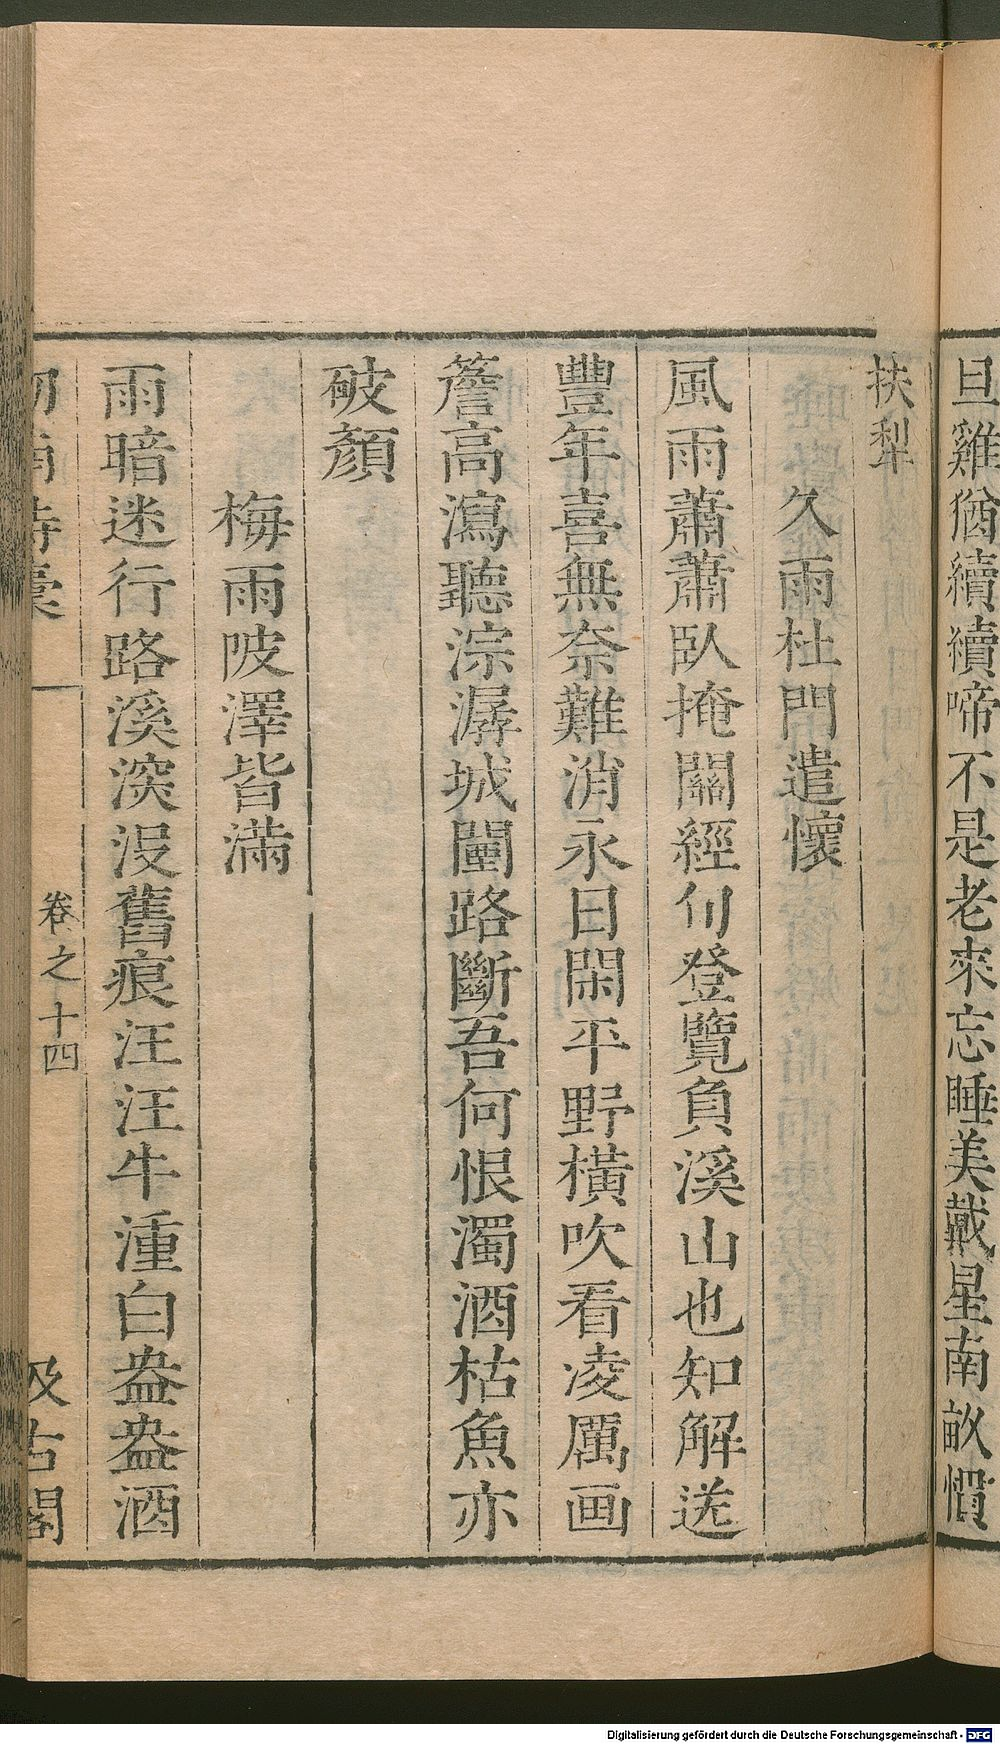 旦雞猶續續啼不是老來忘睡美戴星南畝慣
扶犁
久雨杜門遣懷
風雨蕭蕭臥掩關經旬登覽負溪山也知解送
豐年喜無奈難消永日閑平野橫吹看凌厲画
簷高瀉聽淙潺城闉路斷吾何恨濁酒枯魚亦
破顏
梅雨陂澤皆滿
雨暗迷行路溪深没舊痕汪汪牛湩白盎盎酒
劒南詩稾
卷之十四
汲古閣
Digitalisierung gefördert durch die Deutsche Forschungsgemeinschaft - DFG